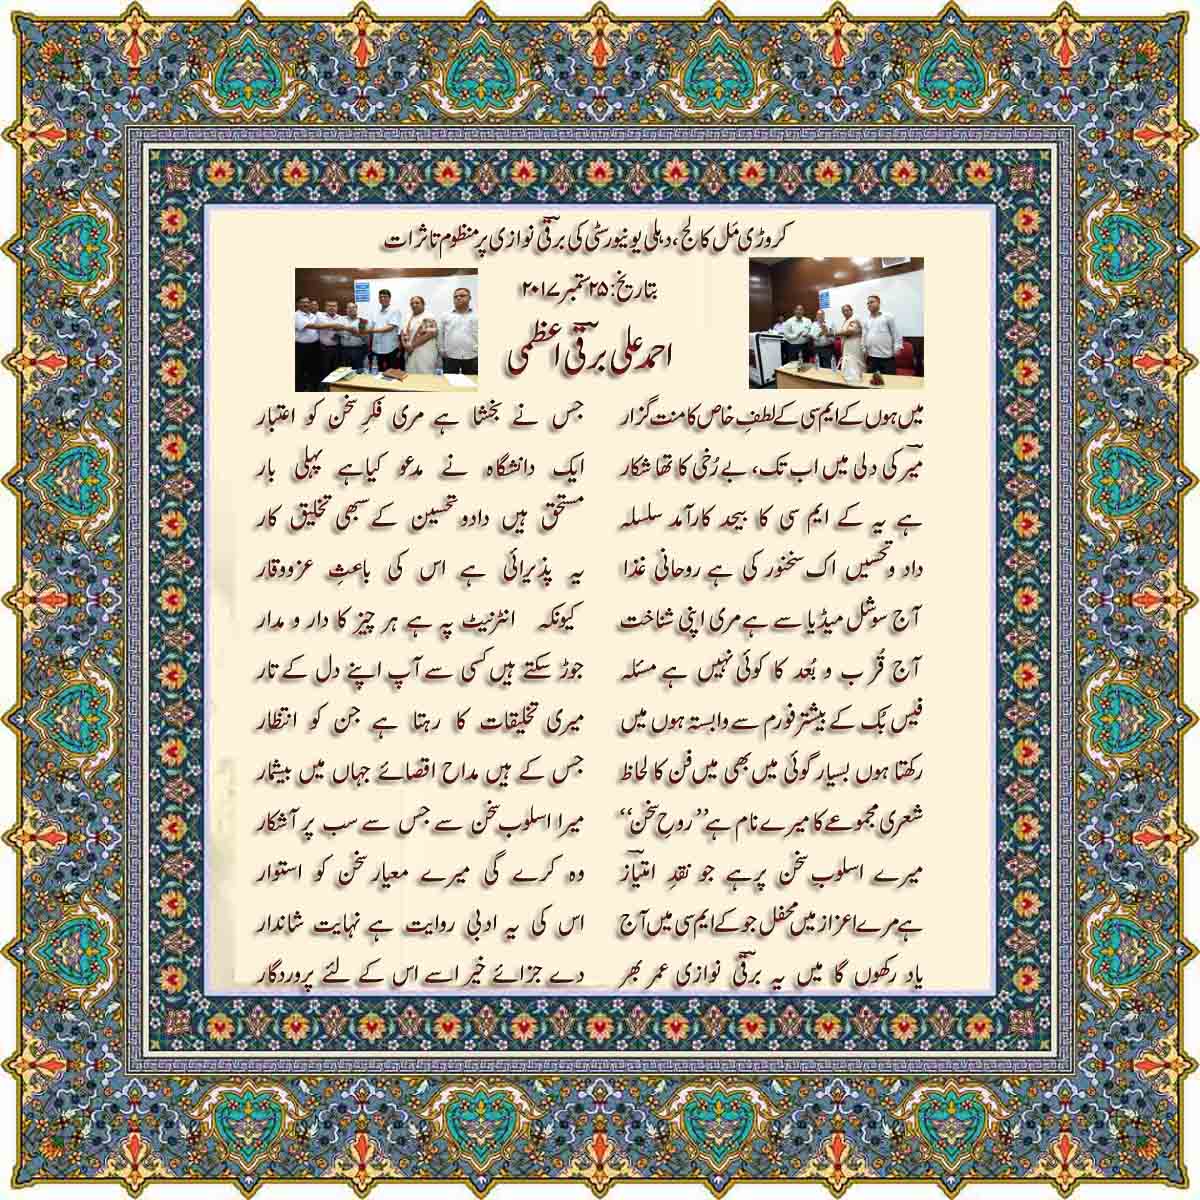 کروڑی مَل کالج، دہلی یونیورسٹی کی برقیؔ نوازی پر منظوم تاثرات
بتاریخ: ۲۵ ستمبر ۲۰۱۷
احمد علی برقیؔ اعظمی
میں ہوں کے ایم سی کے لطفِ خاص کا منت گزار جس نے بخشا ہے مری فکرِ سخن کو اعتبار
میرؔ کی دلی میں اب تک، بے رُخی کا تھا شکار ایک دانشگاہ نے مدعو کیا ہے پہلی بار
ہے یہ کے ایم سی کا بیحد کارآمد سلسلہ مستحق ہیں داد و تحسین کے سبھی تخلیق کار
داد و تحسیں اک سخنور کی ہے روحانی غذا یہ پذیرائی ہے اس کی باعثِ عزو وقار
آج سوشل میڈیا سے ہے مری اپنی شناخت کیونکہ انٹرنیٹ پہ ہے ہر چیز کا دار و مدار
آج قُرب و بُعد کا کوئی نہیں ہے مسئلہ جوڑ سکتے ہیں کسی سے آپ اپنے دل کے تار
فیس بُک کے بیشتر فورم سے وابستہ ہوں میں میری تخلیقات کا رہتا ہے جن کو انتظار
رکھتا ہوں بسیار گوئی میں بھی میں فن کا لحاظ جس کے ہیں مداح اقصائے جہاں میں بیشمار
شعری مجموعے کا میرے نام ہے ’’روحِ سخن‘‘ میرا اسلوب سخن سے جس سے سب پر آشکار
میرے اسلوب سخن پر ہے جو نقدِ امتیازؔ وہ کرے گی میرے معیار سخن کو استوار
ہے مرے اعزاز میں محفل جو کے ایم سی میں آج اس کی یہ ادبی روایت ہے نہایت شاندار
یاد رکھوں گا میں یہ برقیؔ نوازی عمر بھر دے جزائے خیر اسے اس کے لئے پروردگار